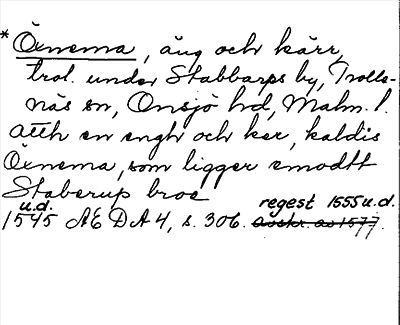 * Öënema, äng och kärr,
trol. under Stabbarps by, Trolle-
näs sn, Onsjö hd, Malm. l.
Atth en engh och ker, kaldis
Öënema, som ligger emodtt
Staberup broe
u.d. regest 1555 u.d.
1545 AE DA 4, s. 306. avskr. av 1577.